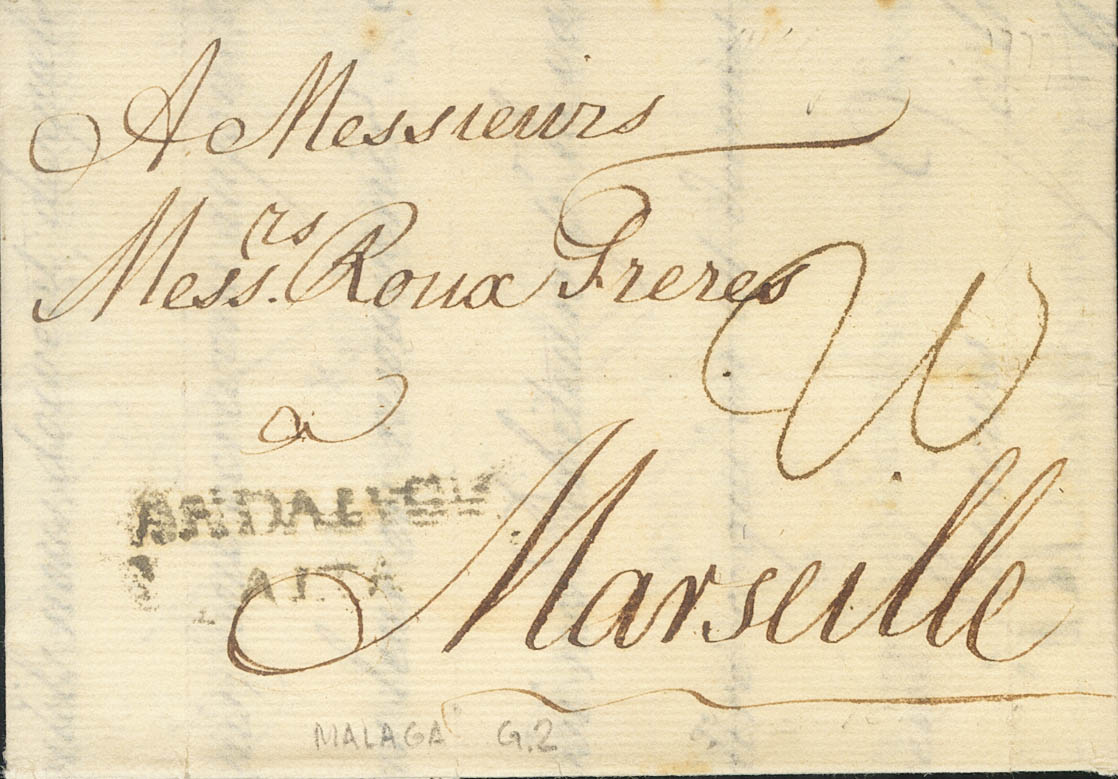 A Messieurs
Messrs. Roux Freres
a
Marseille
MALAGA G.2